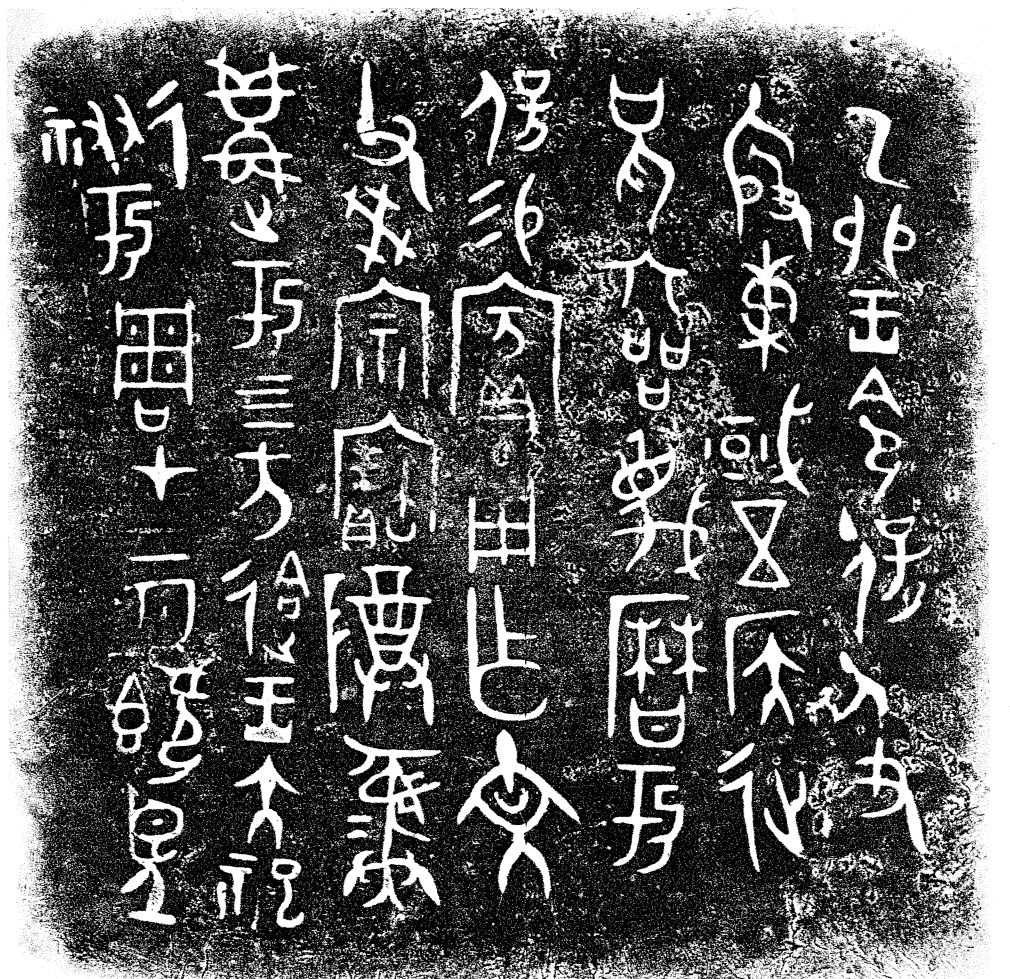 乙卯王令保及
殷東或五侯征
兄六品蔑曆于
保易賓用乍文
父癸宗寶尊彝
遘于四方迨王大祀
祓于周才二月既望